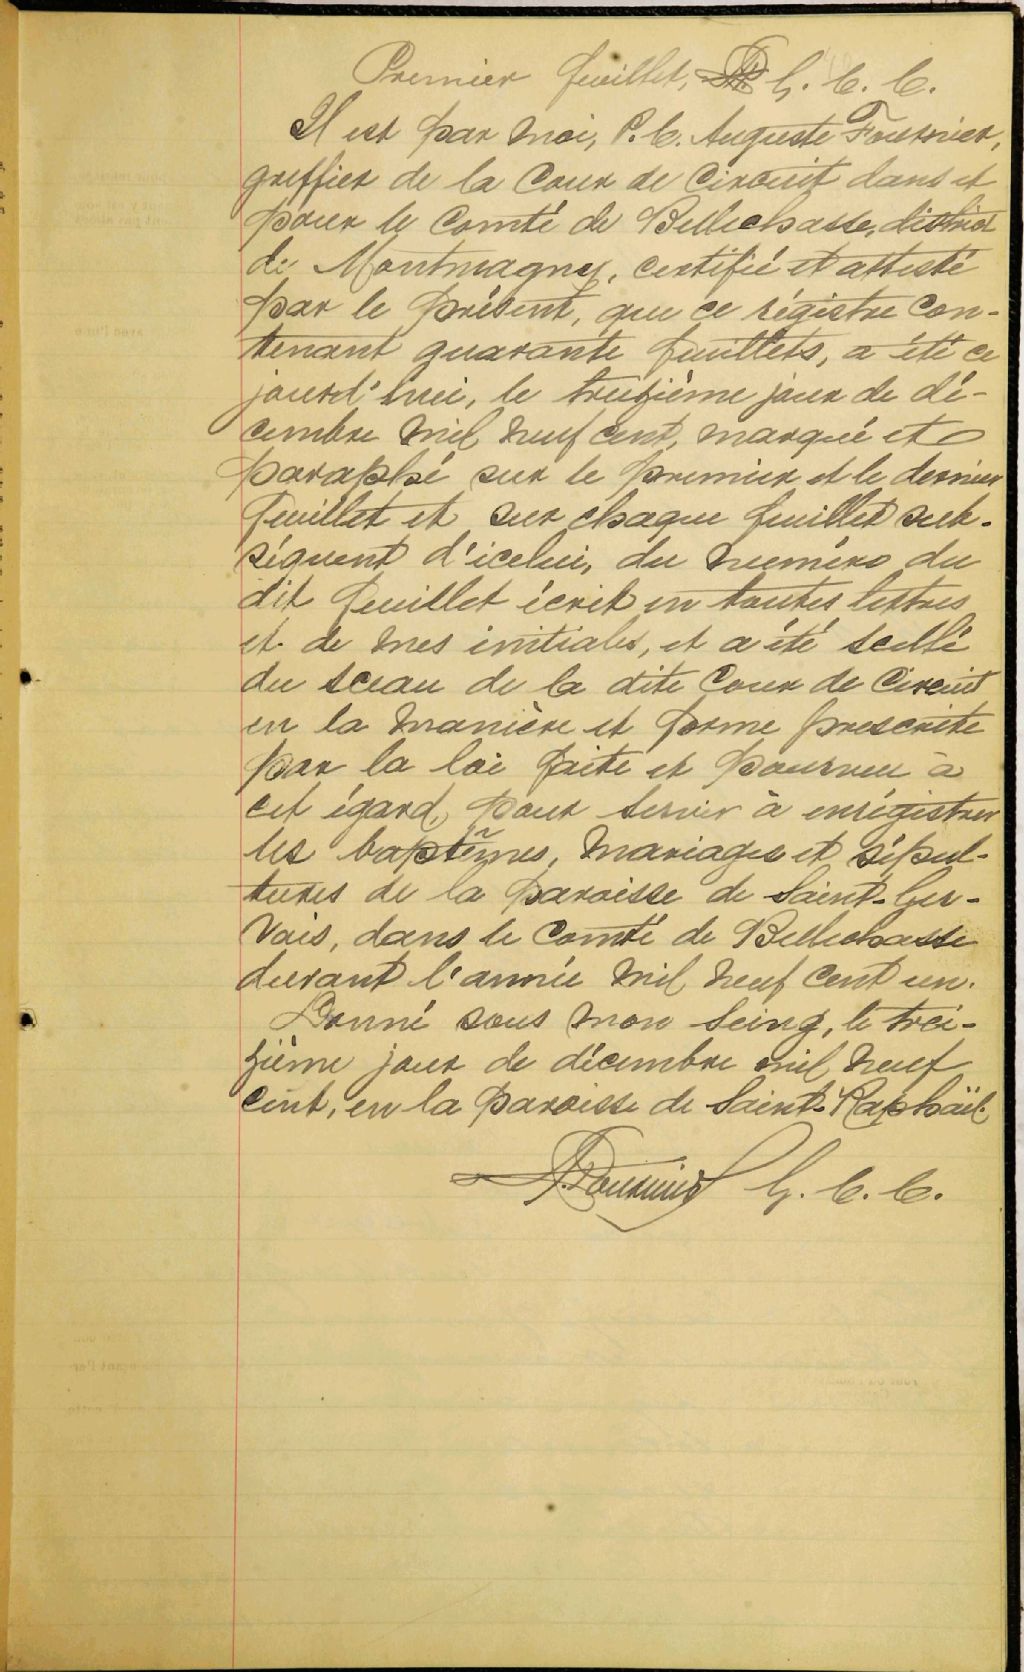 Premier feuillet, G. C. C.
Il est par moi, P. C. Auguste Fournier,
greffier de la Cour de Circuit dans et
pour le Comté de Bellechasse, district
de Montmagny, certifié et attesté
par le présent, que ce régistre con-
tenant quarante feuillets, a été ce
jourd'hui, le treizième jour de dé-
cembre mil neuf cent, marqué et
paraphé sur le premier et le dernier
feuillet et sur chaque feuillet sub-
séquent d'icelui, du numéro du
dit feuillet écrit en toutes lettres
et de mes initiales, et a été scellé
du sceau de la dite Cour de Circuit
en la manière et forme prescrite
par la loi faite et pourvue à
cet égard, pour servir à enrégistrer
les baptêmes, mariages et sépul-
tures de la paroisse de Saint-Ger-
vais, dans le Comté de Bellechasse
durant l'année mil neuf cent un.
Donné sous mon seing, le trei-
zième jour de décembre mil neuf
cent, en la paroisse de Saint-Raphaël.
Fournier G. C. C.